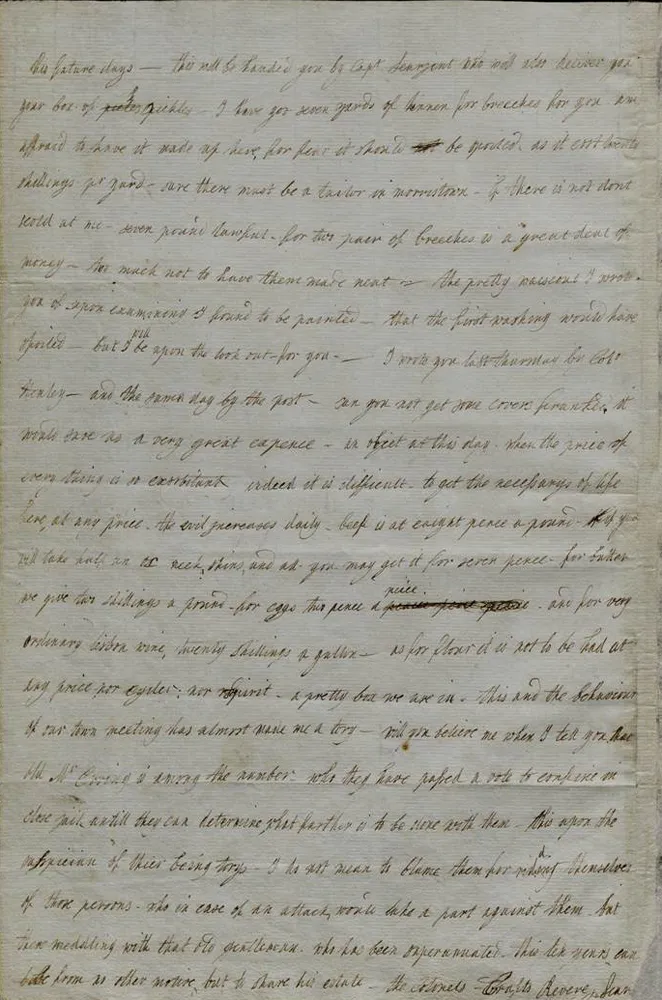 his future days — this will be handed you by Capt Seargent who will also deliver you
your box of pickles - I have got seven yards of linnen for breeches for you am
affraid to have it made up here, for fear it should not be spoiled. as it cost twenty
shillings pr yard - sure there must be a tailor in morristown - if there is not dont
scold at me - seven pound lawful - for two pair of breeches is a great deal of
money - too much not to have them made neat - the pretty waiscoat I wrote
you of upon examining I found to be painted - that the first washing would have
spoiled - but I will be upon the look out - for you - I wrote you last thursday by Colo
Henley - and the same day by the post - can you not get some covers franked, it
would save us a very great expence - an object at this day - when the price of
every thing is so exorbitant indeed it is difficult - to get the necessarys of life
here, at any price. the evil increases daily - beef is at eaight pence a pound - if you
will take half an ox neck, skins, and all you may get it for seven pence - for butter
we give two shillings a pound - for eggs two pence a peice. and for very
ordinary lisbon wine, twenty shillings a gallon - as for flour it is not to be had at
any price nor cyder, nor spirit - a pretty box we are in. this and the behaviour
of our town meeting has almost made me a tory - will you believe me when I tell you, that
old Mr Erving is among the number - who they have passed a vote to confine in
close jail, untill they can determine what farther is to be done with them - this upon the
suspician of thier being torys - I do not mean to blame them for riding themselves
of those persons - who in case of an attack, would take a part against them, but
there meddling with that old gentleman. who has been superanuated. this ten years can
be from no other motive, but to share his estate - the Colonels - Crafts Revere,